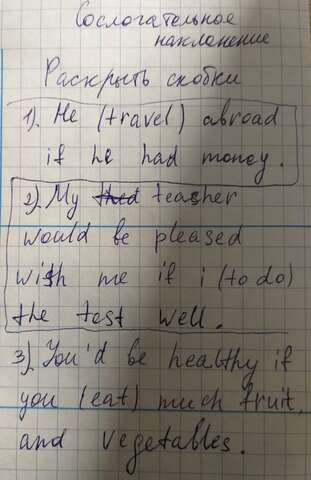 Сослогательное
наклонение
Раскрыть скобки
1). He (travel) abroad
if he had money.
2). My teasher
would be pleased
with me if i (to do)
the test well.
3). You'd be healthy if
you (eat) much fruit,
and vegetables.